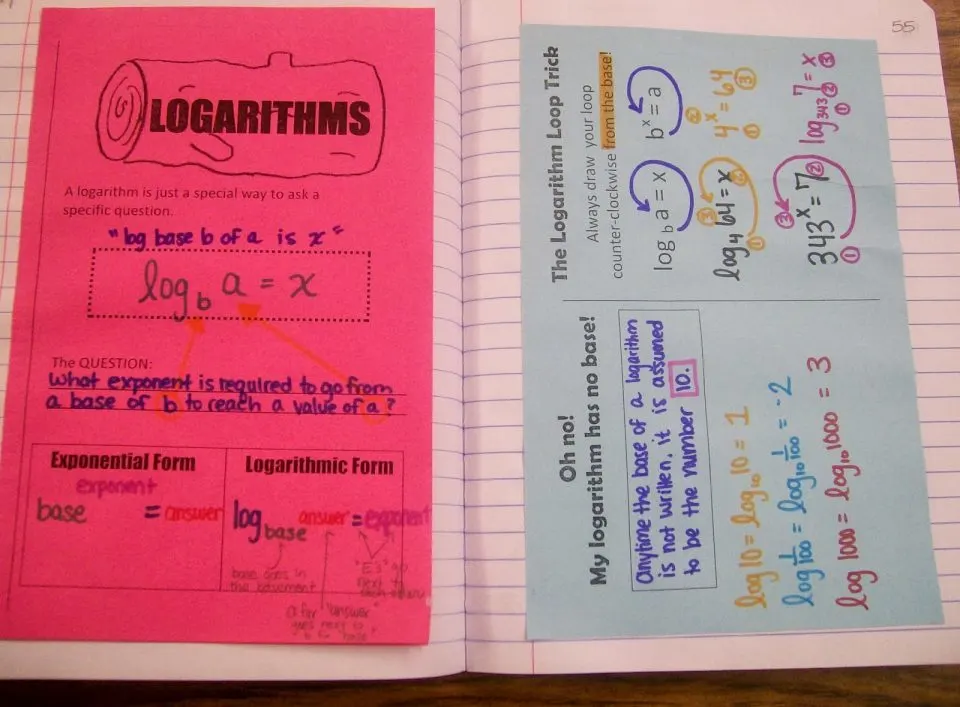 LOGARITHMS
A logarithm is just a special way to ask a
specific question.
"log base b of a is x"
log_b a = x
The QUESTION:
What exponent is required to go from
a base of b to reach a value of a?
Exponential Form
exponent
base = answer
Logarithmic Form
log base answer = exponent
base goes in
the basement
"E's" go
next to
each other
a for "answer"
goes next to
b for "base"
55
The Logarithm Loop Trick
Always draw your loop
counter-clockwise from the base!
log_b a = x b^x = a
log_4 64 = x 4^x = 64
① ③ ② ① ② ③
343^x = 7 log_343 7 = x
① ③ ② ① ② ③
Oh no!
My logarithm has no base!
Anytime the base of a logarithm
is not written, it is assumed
to be the number 10.
log 10 = log_10 10 = 1
log 1/100 = log_10 1/100 = -2
log 1000 = log_10 1000 = 3